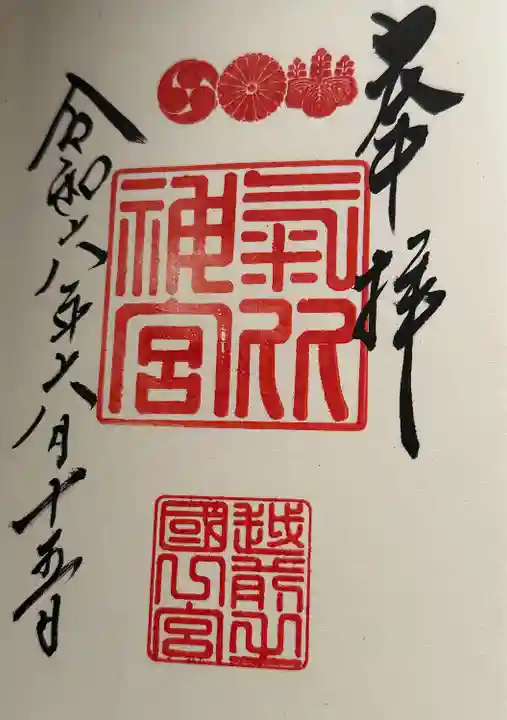 奉拝
氣比
神宮
越前之
國 宮
令和六年六月十五日